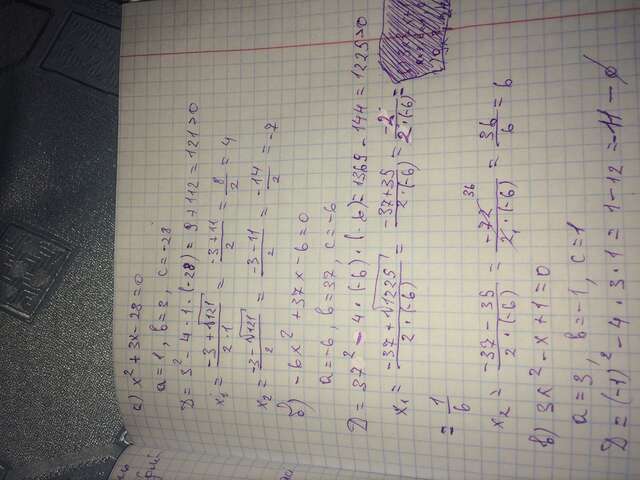 а) x² + 3x - 28 = 0
a = 1, b = 3, c = -28
D = 3² - 4 · 1 · (-28) = 9 + 112 = 121 > 0
x₁ = \frac{-3 + \sqrt{121}}{2 · 1} = \frac{-3 + 11}{2} = \frac{8}{2} = 4
x₂ = \frac{-3 - \sqrt{121}}{2} = \frac{-3 - 11}{2} = \frac{-14}{2} = -7
б) -6x² + 37x - 6 = 0
a = -6, b = 37, c = -6
D = 37² - 4 · (-6) · (-6) = 1369 - 144 = 1225 > 0
x₁ = \frac{-37 + \sqrt{1225}}{2 · (-6)} = \frac{-37 + 35}{2 · (-6)} = \frac{-2}{2 · (-6)} =
= \frac{1}{6}
x₂ = \frac{-37 - 35}{2 · (-6)} = \frac{-72}{2 · (-6)} = \frac{36}{6} = 6
в) 3x² - x + 1 = 0
a = 3, b = -1, c = 1
D = (-1)² - 4 · 3 · 1 = 1 - 12 = -11 - ∅